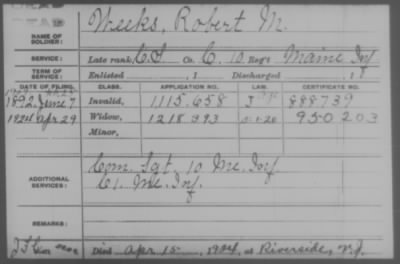 DEAD
NAME OF SOLDIER: Weeks, Robert M.
SERVICE: Late rank, C.S Co. C, 10 Reg't Maine Inf
TERM OF SERVICE: Enlisted , 1 Discharged , 1
DATE OF FILING. CLASS. APPLICATION NO. LAW. CERTIFICATE NO.
1892 June 7 Invalid, 1115.658 J 888739
1924 Apr 29 Widow, 1218393 5-1-20 950203
Minor,
ADDITIONAL SERVICES: Com. Sgt. 10 Me. Inf
C 1. Me. Inf.
REMARKS:
Died Apr 15, 1924, at Riverside, N.J.